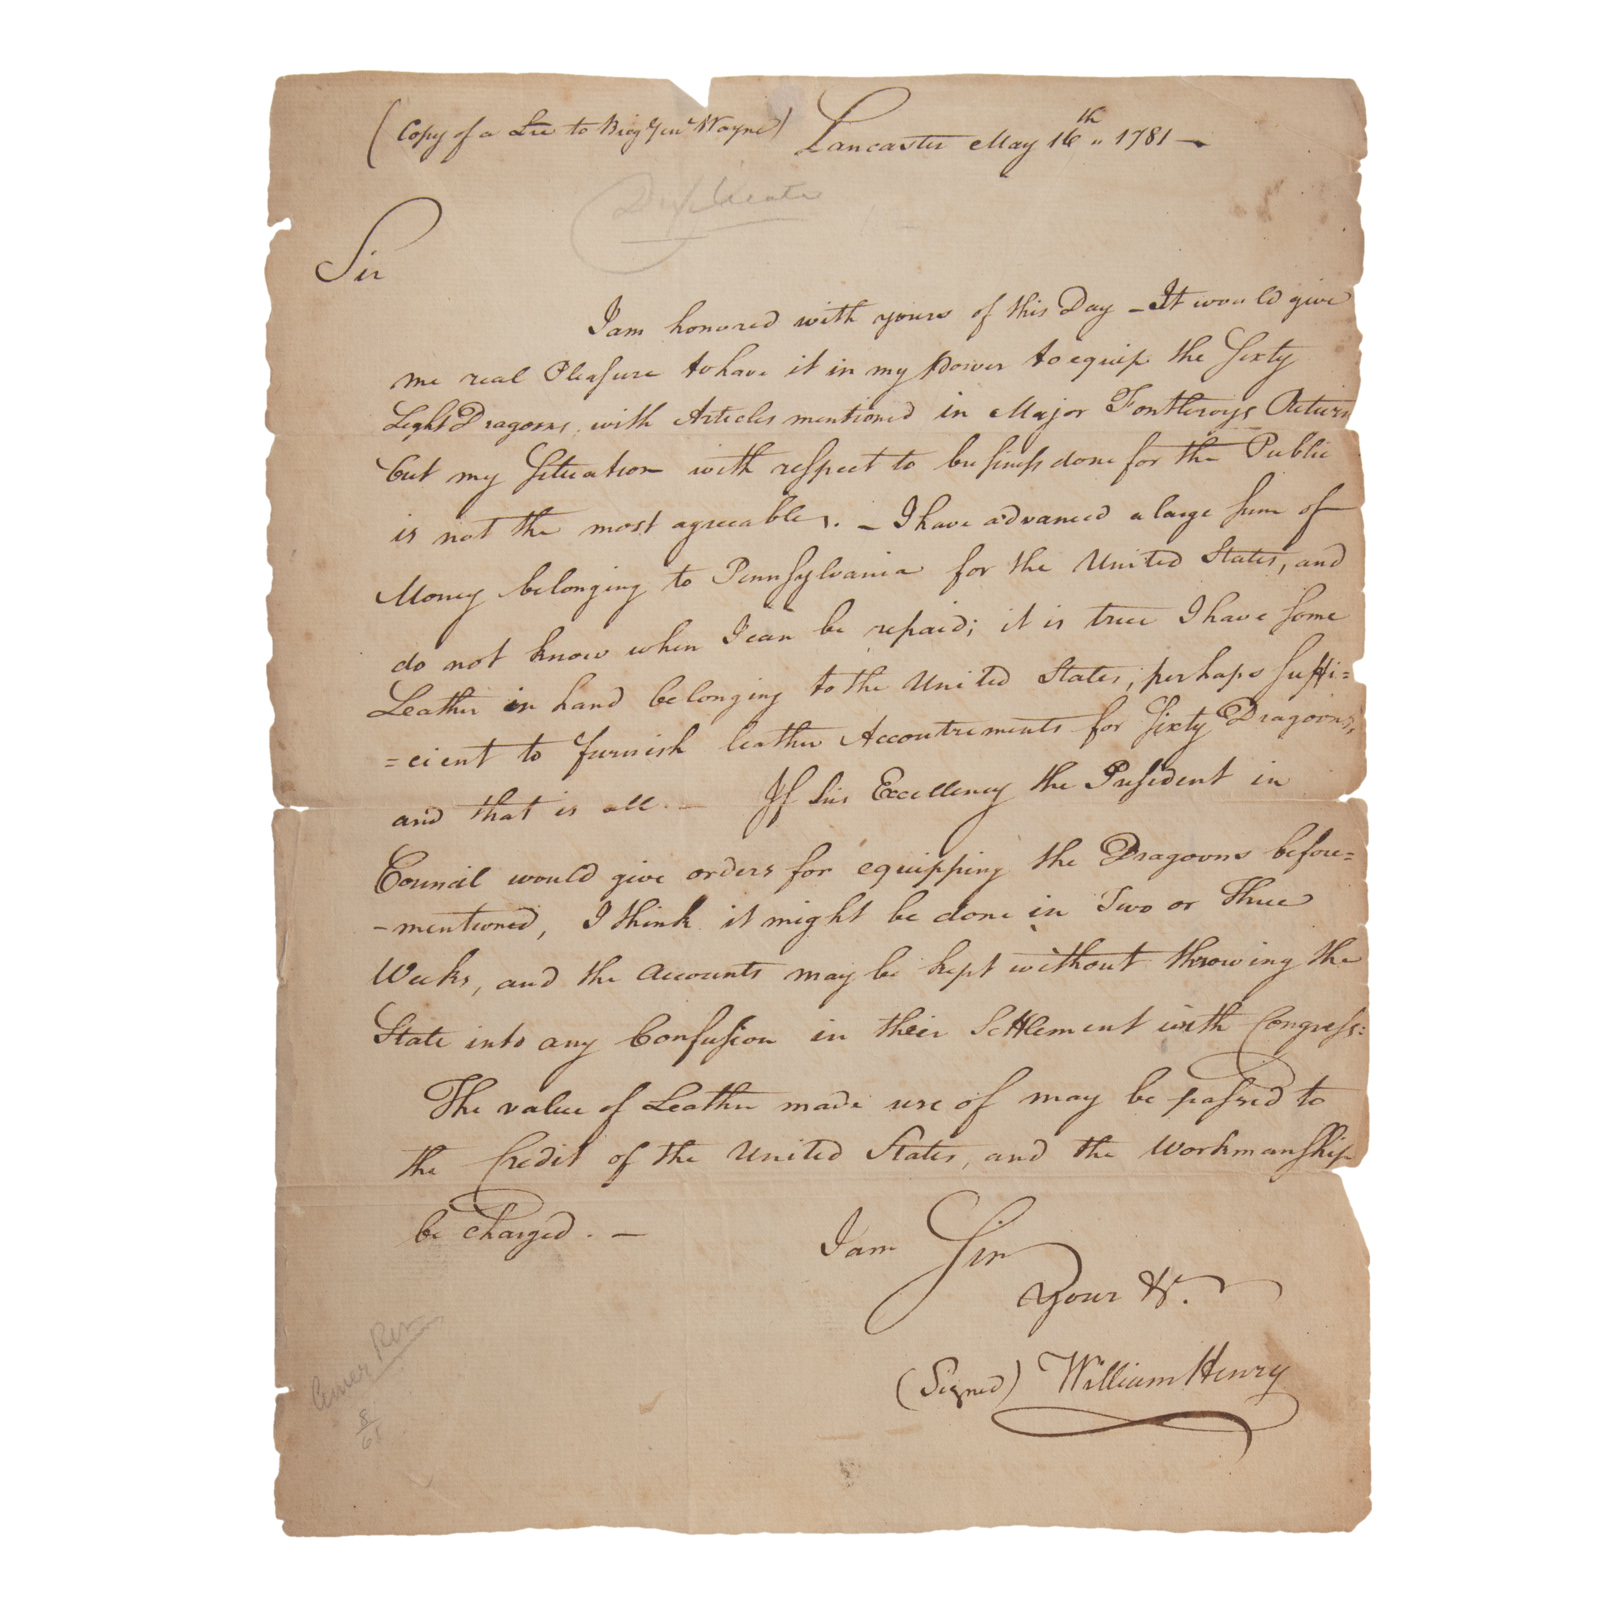 (Copy of a Lre to Brig Genl Wayne) Lancaster May 16th 1781 —
Duplicate
Sir
I am honored with yours of this Day — It would give
me real Pleasure to have it in my Power to equip the Sixty
Light Dragoons, with Articles mentioned in Major Fontleroys Return
but my Situation with respect to business done for the Public
is not the most agreeable. — I have advanced a large Sum of
Money belonging to Pennsylvania for the United States, and
do not know when I can be repaid; it is true I have some
Leather in hand belonging to the United States, perhaps suffi=
=cient to furnish leather Accoutrements for Sixty Dragoons,
and that is all — If his Excellency the President in
Council would give orders for equipping the Dragoons before=
-mentioned, I think it might be done in Two or Three
Weeks, and the Accounts may be kept without throwing the
State into any Confusion in their Settlement with Congress:
The value of Leather made use of may be passed to
the Credit of the United States, and the Workmanship
be charged. —
I am Sir
Your &c.
(Signed) William Henry
Amer Rev
8